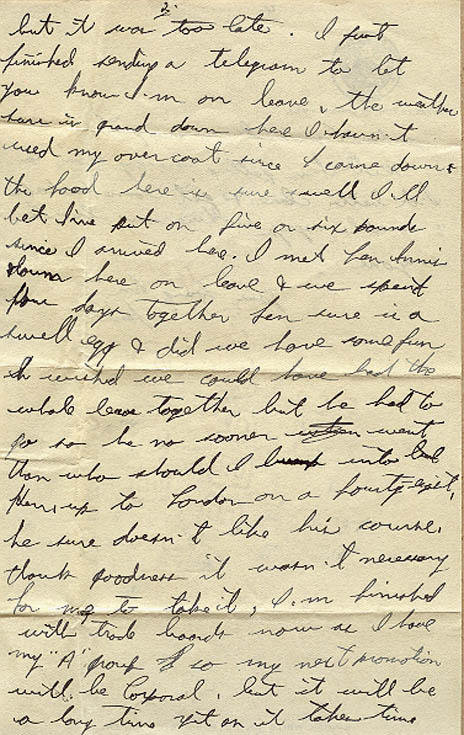 2.
but it was too late. I just
finished sending a telegram to let
you know I'm on leave, the weather
sure is grand down here I haven't
used my overcoat since I came down &
the food here is sure swell I'll
bet I've put on five or six pounds
since I arrived here. I met Len
down here on leave & we spent
four days together Len sure is a
swell egg & did we have some fun
I wished we could have had the
whole leave together but he had to
go so he no sooner went
than who should I bump into but
up to London on a forty eight,
he sure doesn't like his course,
thank goodness it wasn't necessary
for me to take it, I'm finished
with trade boards now as I have
my "A" group & so my next promotion
will be Corporal, but it will be
a long time yet as it takes time